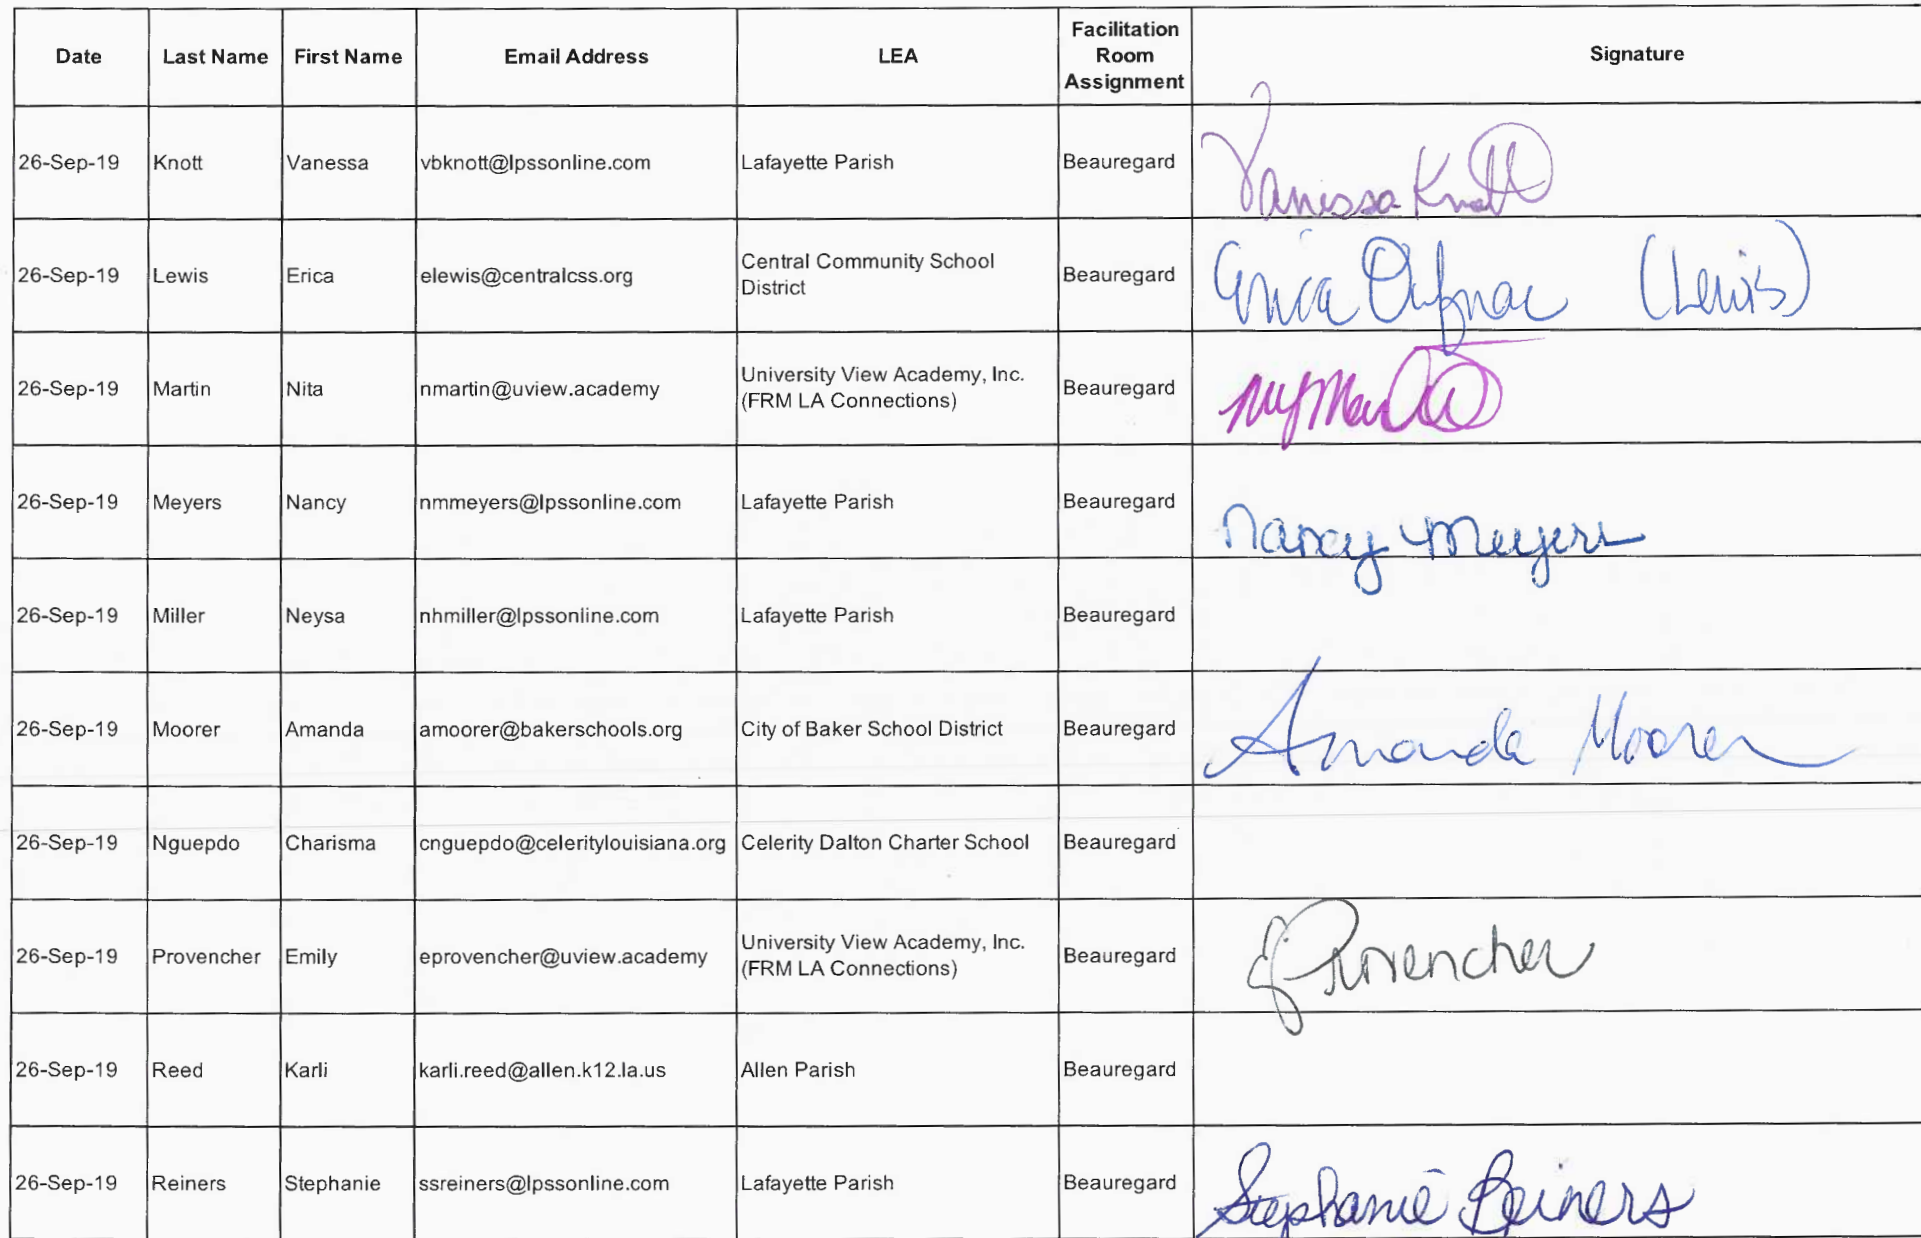 Date Last Name First Name Email Address LEA Facilitation Room Assignment Signature
26-Sep-19 Knott Vanessa vbknott@lpssonline.com Lafayette Parish Beauregard Vanessa Knott
26-Sep-19 Lewis Erica elewis@centralcss.org Central Community School District Beauregard Erica (Lewis)
26-Sep-19 Martin Nita nmartin@uview.academy University View Academy, Inc. (FRM LA Connections) Beauregard
26-Sep-19 Meyers Nancy nmmeyers@lpssonline.com Lafayette Parish Beauregard Nancy Meyers
26-Sep-19 Miller Neysa nhmiller@lpssonline.com Lafayette Parish Beauregard
26-Sep-19 Moorer Amanda amoorer@bakerschools.org City of Baker School District Beauregard Amanda Moorer
26-Sep-19 Nguepdo Charisma cnguepdo@celeritylouisiana.org Celerity Dalton Charter School Beauregard
26-Sep-19 Provencher Emily eprovencher@uview.academy University View Academy, Inc. (FRM LA Connections) Beauregard E Provencher
26-Sep-19 Reed Karli karli.reed@allen.k12.la.us Allen Parish Beauregard
26-Sep-19 Reiners Stephanie ssreiners@lpssonline.com Lafayette Parish Beauregard Stephanie Reiners